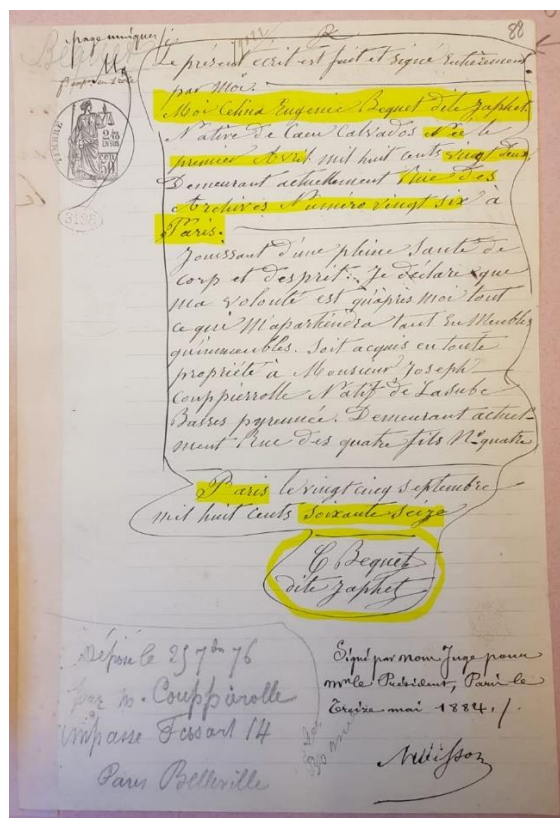 88
page unique
Le présent écrit est fait et signé entièrement
par moi.
Moi Celina Eugenie Bequet dite Japhet.
Native de Caen Calvados Née le
premier Avril mil huit cents vingt deux
Demeurant actuellement Rue des
Archives Numero vingt six à
Paris.
Jouissant d'une pleine Santé de
corp et d'esprit. Je déclare que
ma volonté est qu'après moi tout
ce qui m'apartiendra tant En Meubles
qu'immeubles. Soit acquis en toute
propriété à Monsieur Joseph
Couppierrolle Natif de Lasube
Basses pyrennée. Demeurant actuel-
ment Rue des quatre fils No quatre
Paris le vingt cinq septembre
mil huit cents soixante seize
C Bequet
dite Japhet
TIMBRE
3198
Déposé le 25 7bre 76
par M. Couppierolle
impasse Fessart 14
Paris Belleville
Signé par nous Juge pour
Mr le Président, Paris le
Treize mai 1884./.